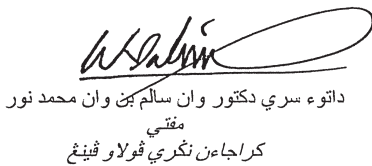 داتوء سري دکتور وان سالم بن وان محمد نور
مفتي
کراجاءن نݢري ڤولاو ڤينڠ